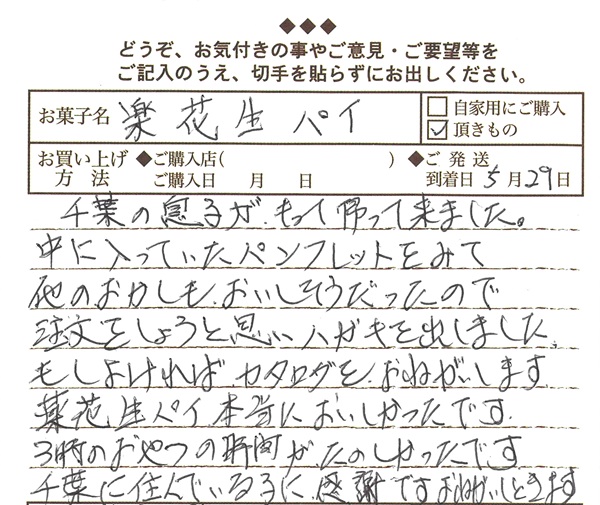 ◆◆◆
どうぞ、お気付きの事やご意見・ご要望等を
ご記入のうえ、切手を貼らずにお出しください。
お菓子名 楽花生パイ □自家用にご購入
☑頂きもの
お買い上げ ◆ご購入店( ) ◆ご発送
方法 ご購入日 月 日 到着日 5月29日
千葉の息子が、もって帰って来ました。
中に入っていたパンフレットをみて
他のおかしも、おいしそうだったので
注文をしようと思いハガキを出しました。
もしよければカタログを、おねがいします
楽花生パイ本当においしかったです.
3時のおやつの時間がたのしかったです
千葉に住んでいる子に、感謝ですおねがいしときます